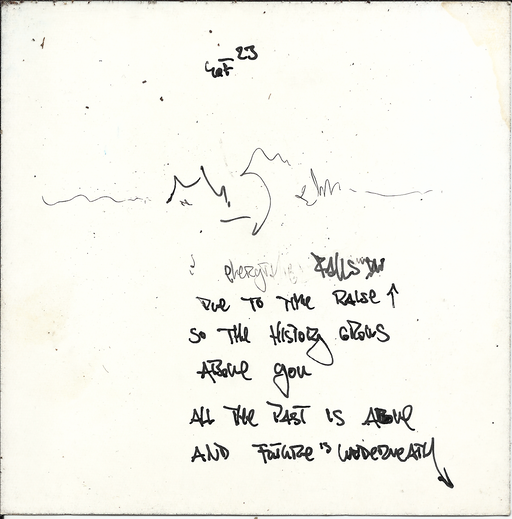 23
FALLS
DUE TO THE RAISE ↑
SO THE HISTORY GROWS
ABOVE you
ALL THE PAST IS ABOVE
AND FUTURE IS UNDERNEATH